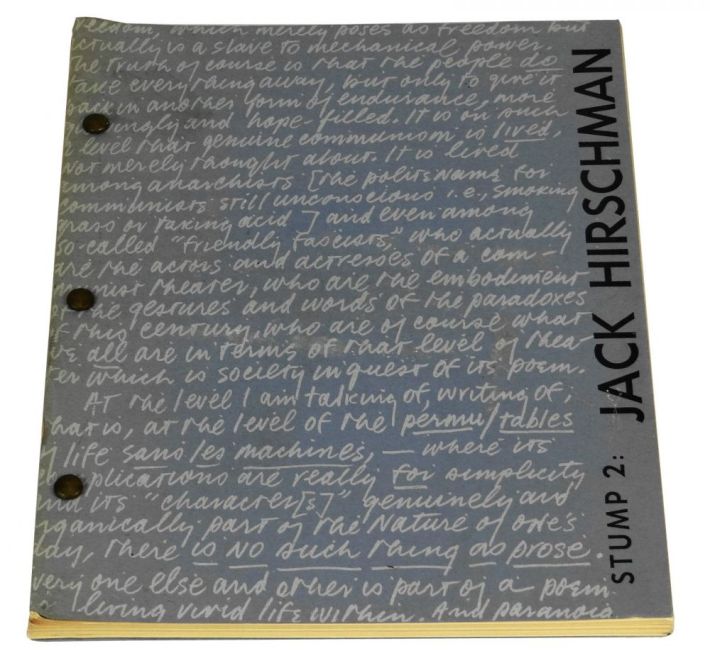 freedom, which merely poses as freedom but
actually is a slave to mechanical power.
The truth of course is that the people do
take everything away, but only to give it
back in another form of endurance, more
and hope-filled. It is on such
a level that genuine communism is lived,
not merely thought about. It is lived
among anarchists [the polits name for
communists still unconscious i.e., smoking
grass or taking acid] and even among
so-called "friendly fascists," who actually
are the actors and actresses of a com-
munist theater, who are the embodiment
of the gestures and words of the paradoxes
of this century, who are of course what
we all are in terms of that level of thea-
ter which is society in quest of its poem.
At the level I am talking of, writing of,
that is, at the level of the permu/tables
of life sans les machines, — where its
complications are really for simplicity
and its "character[s]" genuinely and
organically part of the nature of one's
day, there is no such thing as prose.
Every one else and other is part of a poem
living vivid life within. And paranoia
STUMP 2: JACK HIRSCHMAN